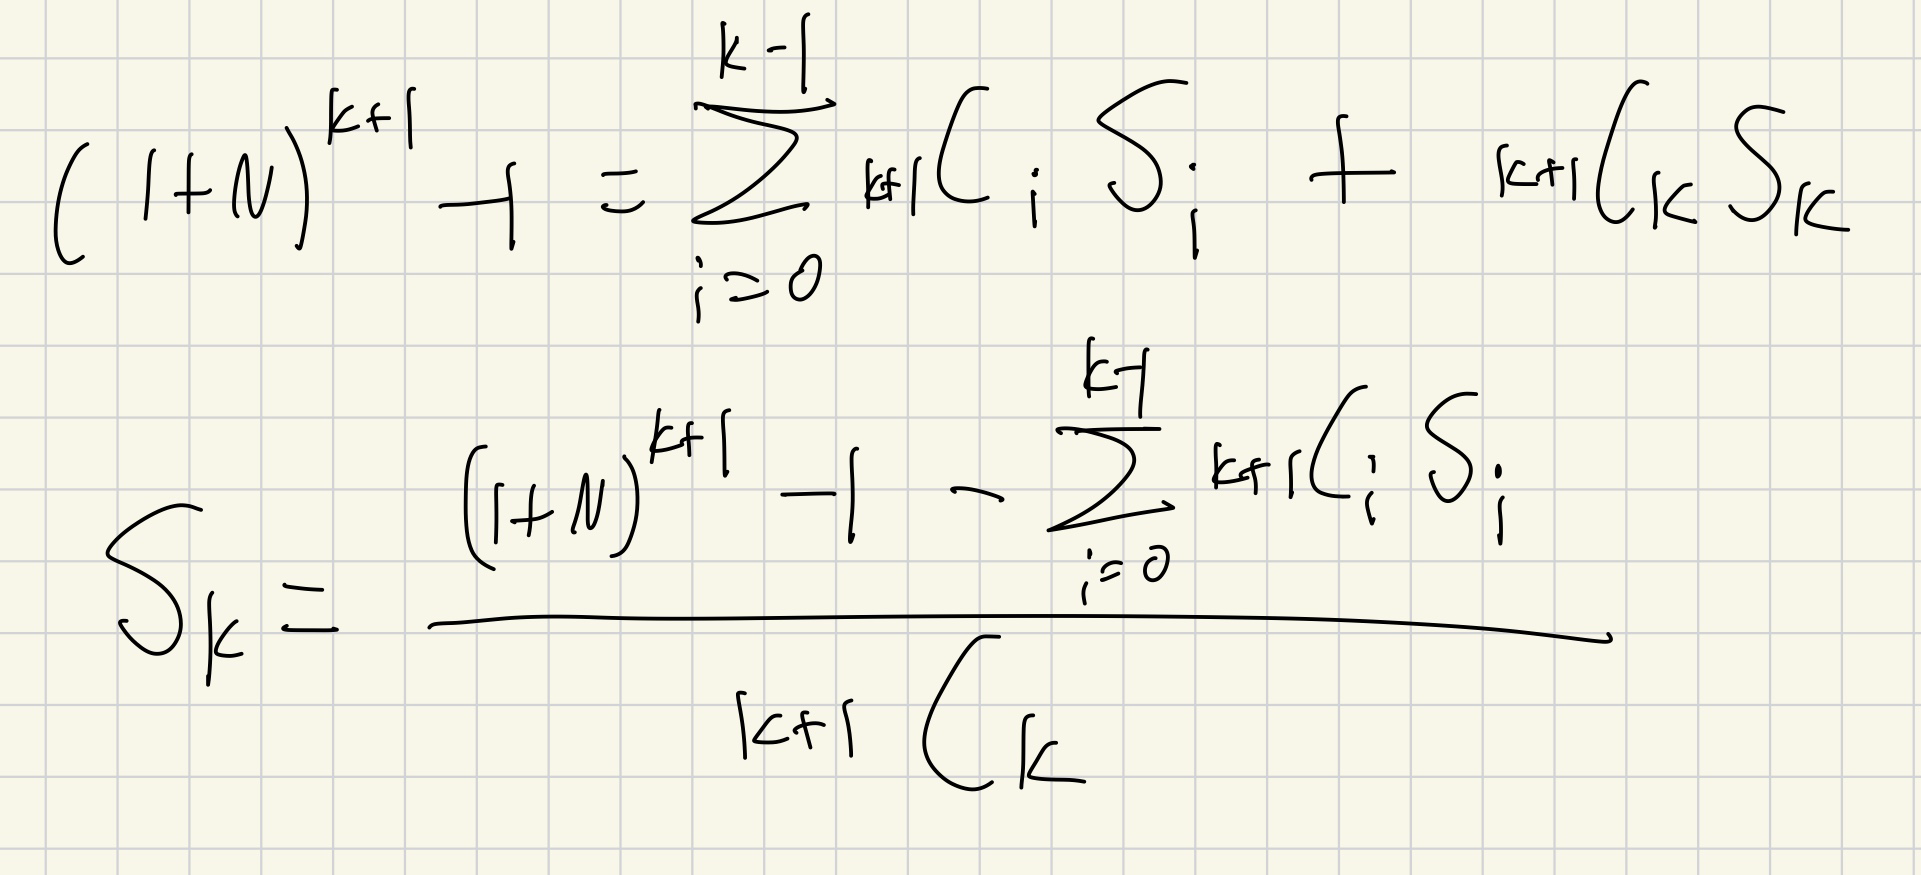 (1+N)^{k+1} - 1 = \sum_{i=0}^{k-1} {}_{k+1}C_i S_i + {}_{k+1}C_k S_k
S_k = \frac{(1+N)^{k+1} - 1 - \sum_{i=0}^{k-1} {}_{k+1}C_i S_i}{{}_{k+1}C_k}